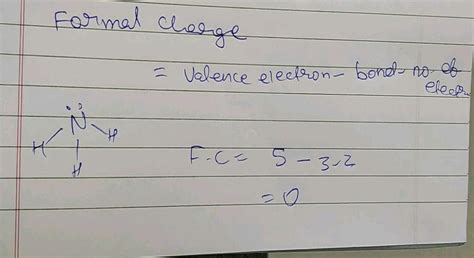 Formal charge
= Valence electron - bond - no. of
electron
N
H
H
H
F.C = 5 - 3 - 2
= 0